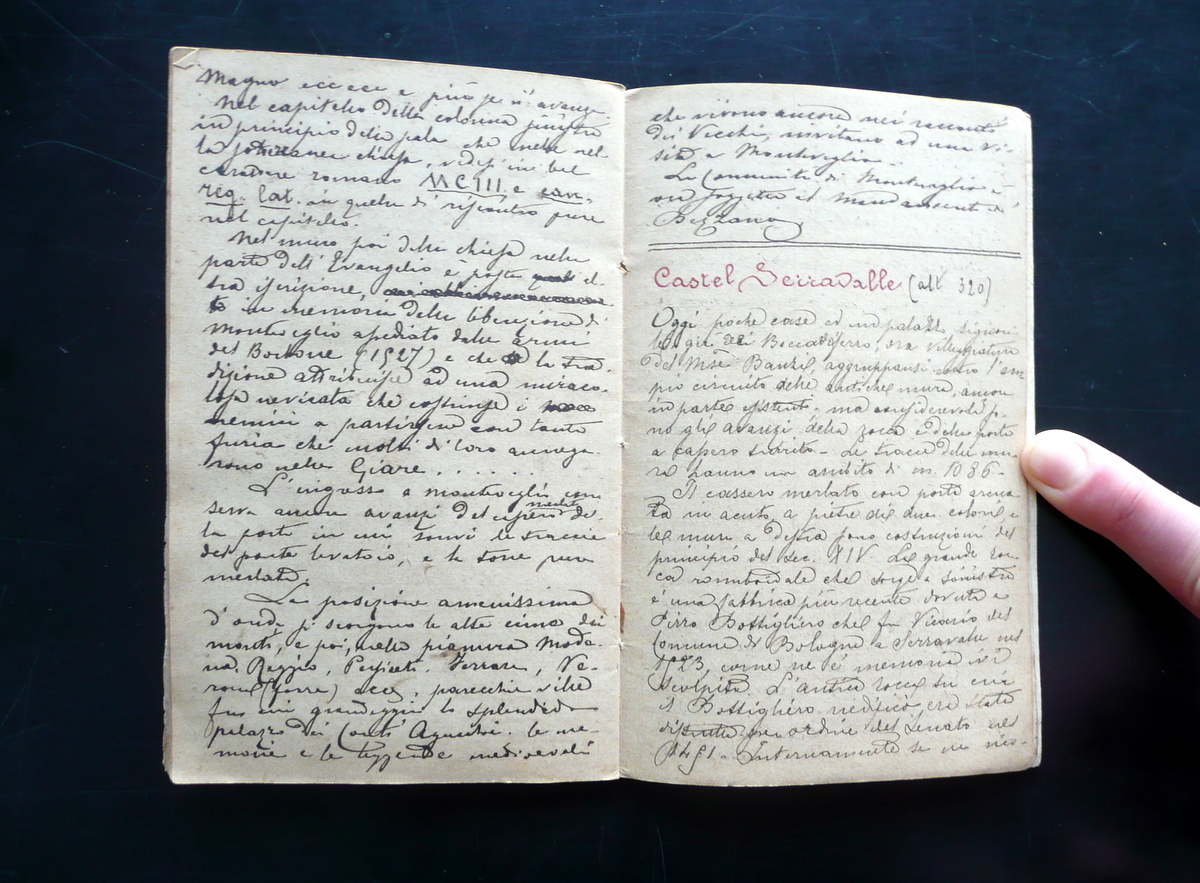 Magno ecc ecc e più se n' avanza
Nel capitello della colonna sinistra
in principio della pala che mette nel
la sotterranea chiesa, vedesi in bel
carattere romano MCIII. e can.
reg. Lat. in quella di riscontro pure
nel capitello.
Nel muro poi della chiesa nella
parte dell'Evangelio è posta al-
tra iscrizione,
in memoria della liberazione di
Monteveglio assediato dalle armi
del Borbone (1527) e che la tra-
dizione attribuisce ad una miraco-
losa nevicata che costrinse i
nemici a partirsene con tanta
furia che molti di loro annega-
rono nelle Giare. . . . . .
L'ingresso a Monteveglio con
serva ancora avanzi del cassero del-
la porta in cui sonvi le traccie
del ponte levatoio, e la torre pure
merlata.
La posizione amenissima
d'onde si scorgono le alte cime dei
monti, e poi, nella pianura Mode-
na, Reggio, Ferrara, Ve-
rona (torre) ecc, parecchie ville
fra cui grandeggia lo splendido
palazzo dei Conti Agucchi. le me-
morie e le leggende medioevali
che vivono ancora nei racconti
dei Vecchi, invitano ad una vi-
sita a Monteveglio.
La Comunità di Monteveglio è
ora soggetta al mandamento di
Bazzano
Castel Serravalle (alt 320)
Oggi poche case ed un palazzo signori
le già dei Boccadiferro, ora villeggiatura
del Mse Banzi, aggruppansi entro l'am
pio circuito delle antiche mura, ancora
in parte esistenti. ma considerevoli so
no gli avanzi della rocca e della porta
a cassero turrito. Le traccie delle mu
ra hanno un ambito di m. 1086.
Il cassero merlato con porta arcua
ta in acuto, a pietre di due colori e
le mura a destra sono costruzioni del
principio del sec. XIV. La grande roc
ca romboidale che sorge a sinistra
è una fabbrica più recente dovuta a
Pirro Bottighero che fu Vicario del
Comune di Bologna a Serravalle nel
1523, come ne è memoria ivi
scolpita. L'antica rocca su cui
il Bottighero riedificò era stata
distrutta per ordine del Senato nel
Internamente se ne